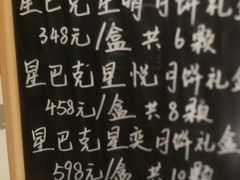 星巴克星晴月饼礼盒
348元/盒 共6颗
星巴克星悦月饼礼盒
458元/盒 共8颗
星巴克星奕月饼礼盒
598元/盒 共10颗